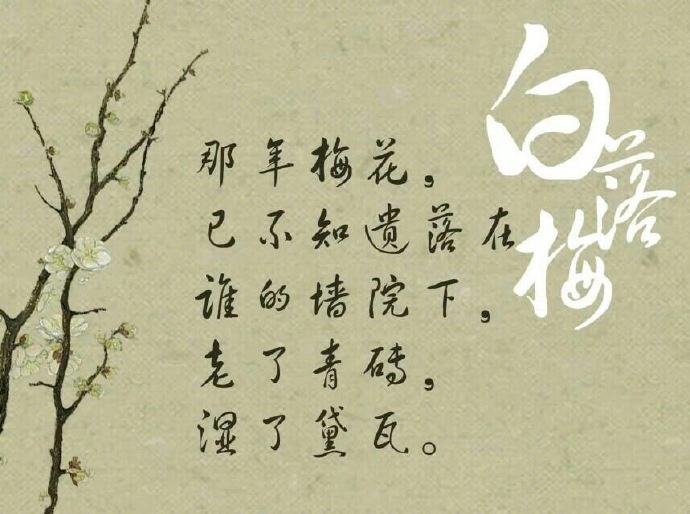 白落梅
那年梅花，
已不知遗落在
谁的墙院下，
老了青砖，
湿了黛瓦。